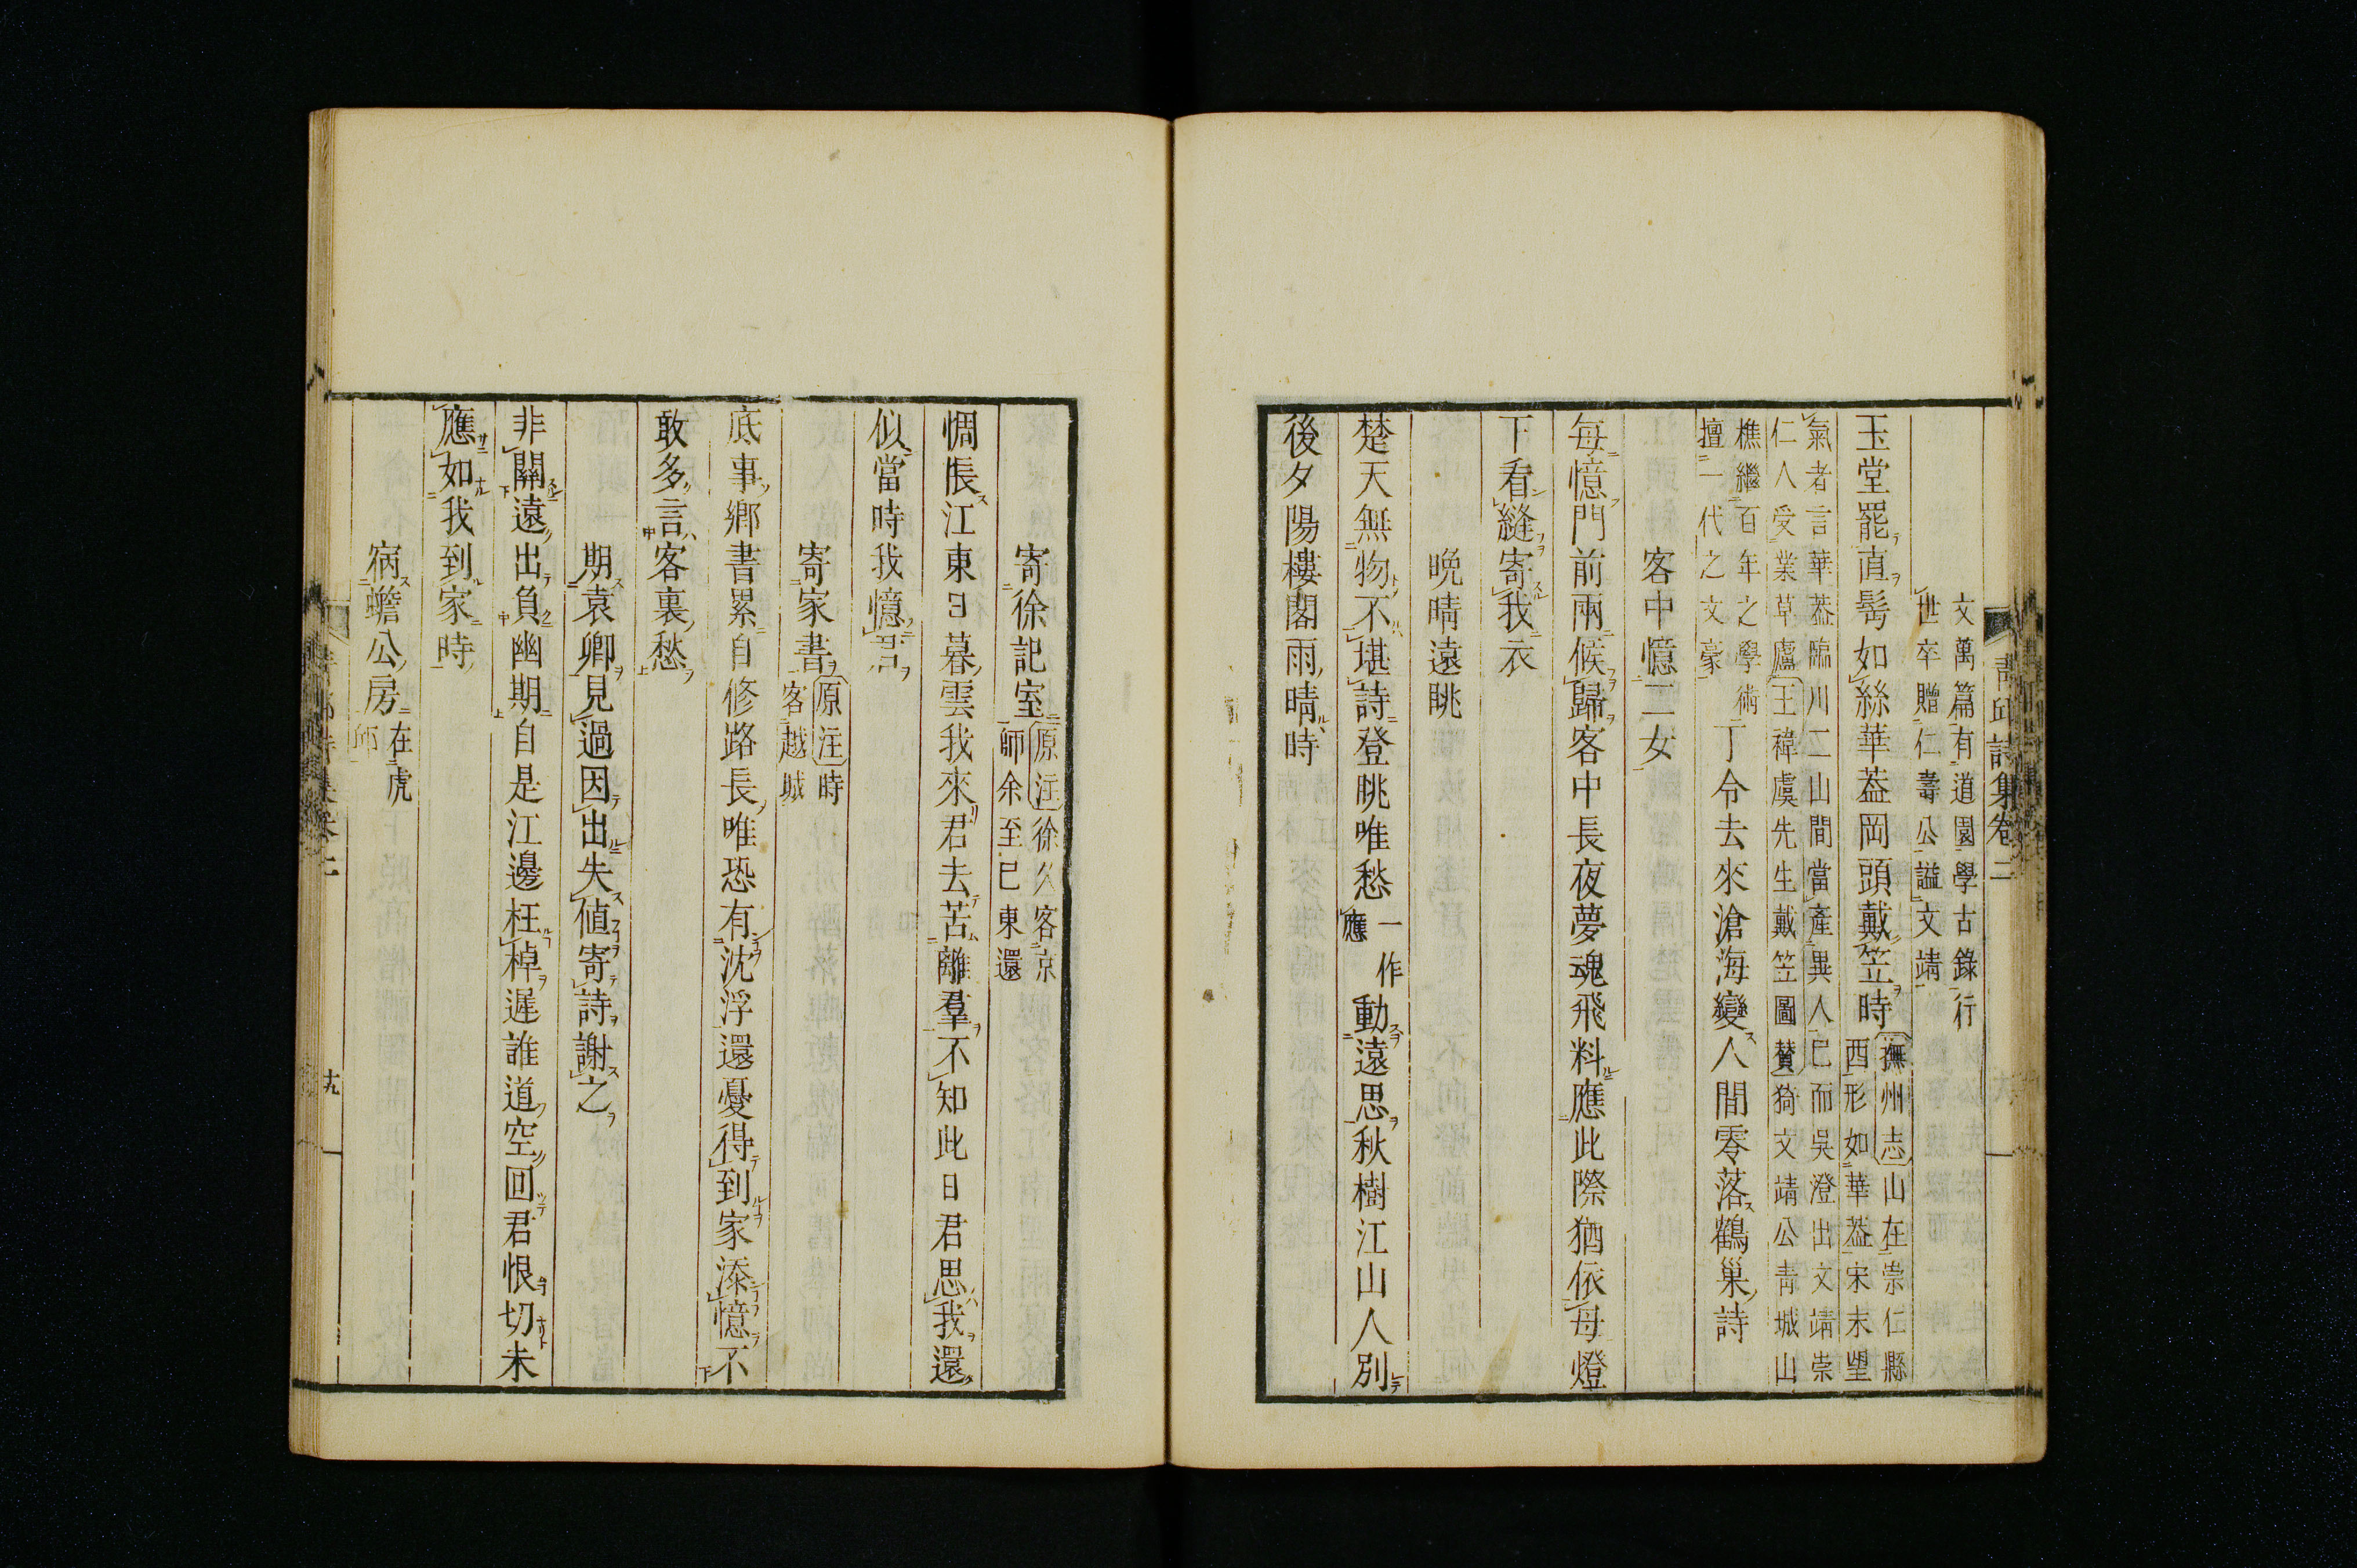 青邱詩集卷二
文萬篇有道園學古錄行
世卒贈仁壽公謚文靖
玉堂罷直髩如絲華葢岡頭戴笠時
撫州志山在崇仁縣
西形如華葢宋末望
氣者言華葢臨川二山間當產異人已而吳澄出文靖崇
仁人受業草廬王褘虞先生戴笠圖贊猗文靖公靑城山
樵繼百年之學術
擅一代之文豪
丁令去來滄海變人間零落鶴巢詩
客中憶二女
每憶門前兩候歸客中長夜夢魂飛料應此際猶依母燈
下看縫寄我衣
晚晴遠眺
楚天無物不堪詩登眺唯愁
一作
應
動遠思秋樹江山人別
後夕陽樓閣雨晴時
寄徐記室
原注徐久客京
師余至已東還
惆悵江東日暮雲我來君去苦離羣不知此日君思我還
似當時我憶君
寄家書
原注時
客越城
底事鄉書累自修路長唯恐有沈浮還憂得到家添憶不
敢多言客裏愁
期袁卿見過因出失値寄詩謝之
非關遠出負幽期自是江邊枉棹遲誰道空回君恨切未
應如我到家時
病蟾公房
在虎
師
十九